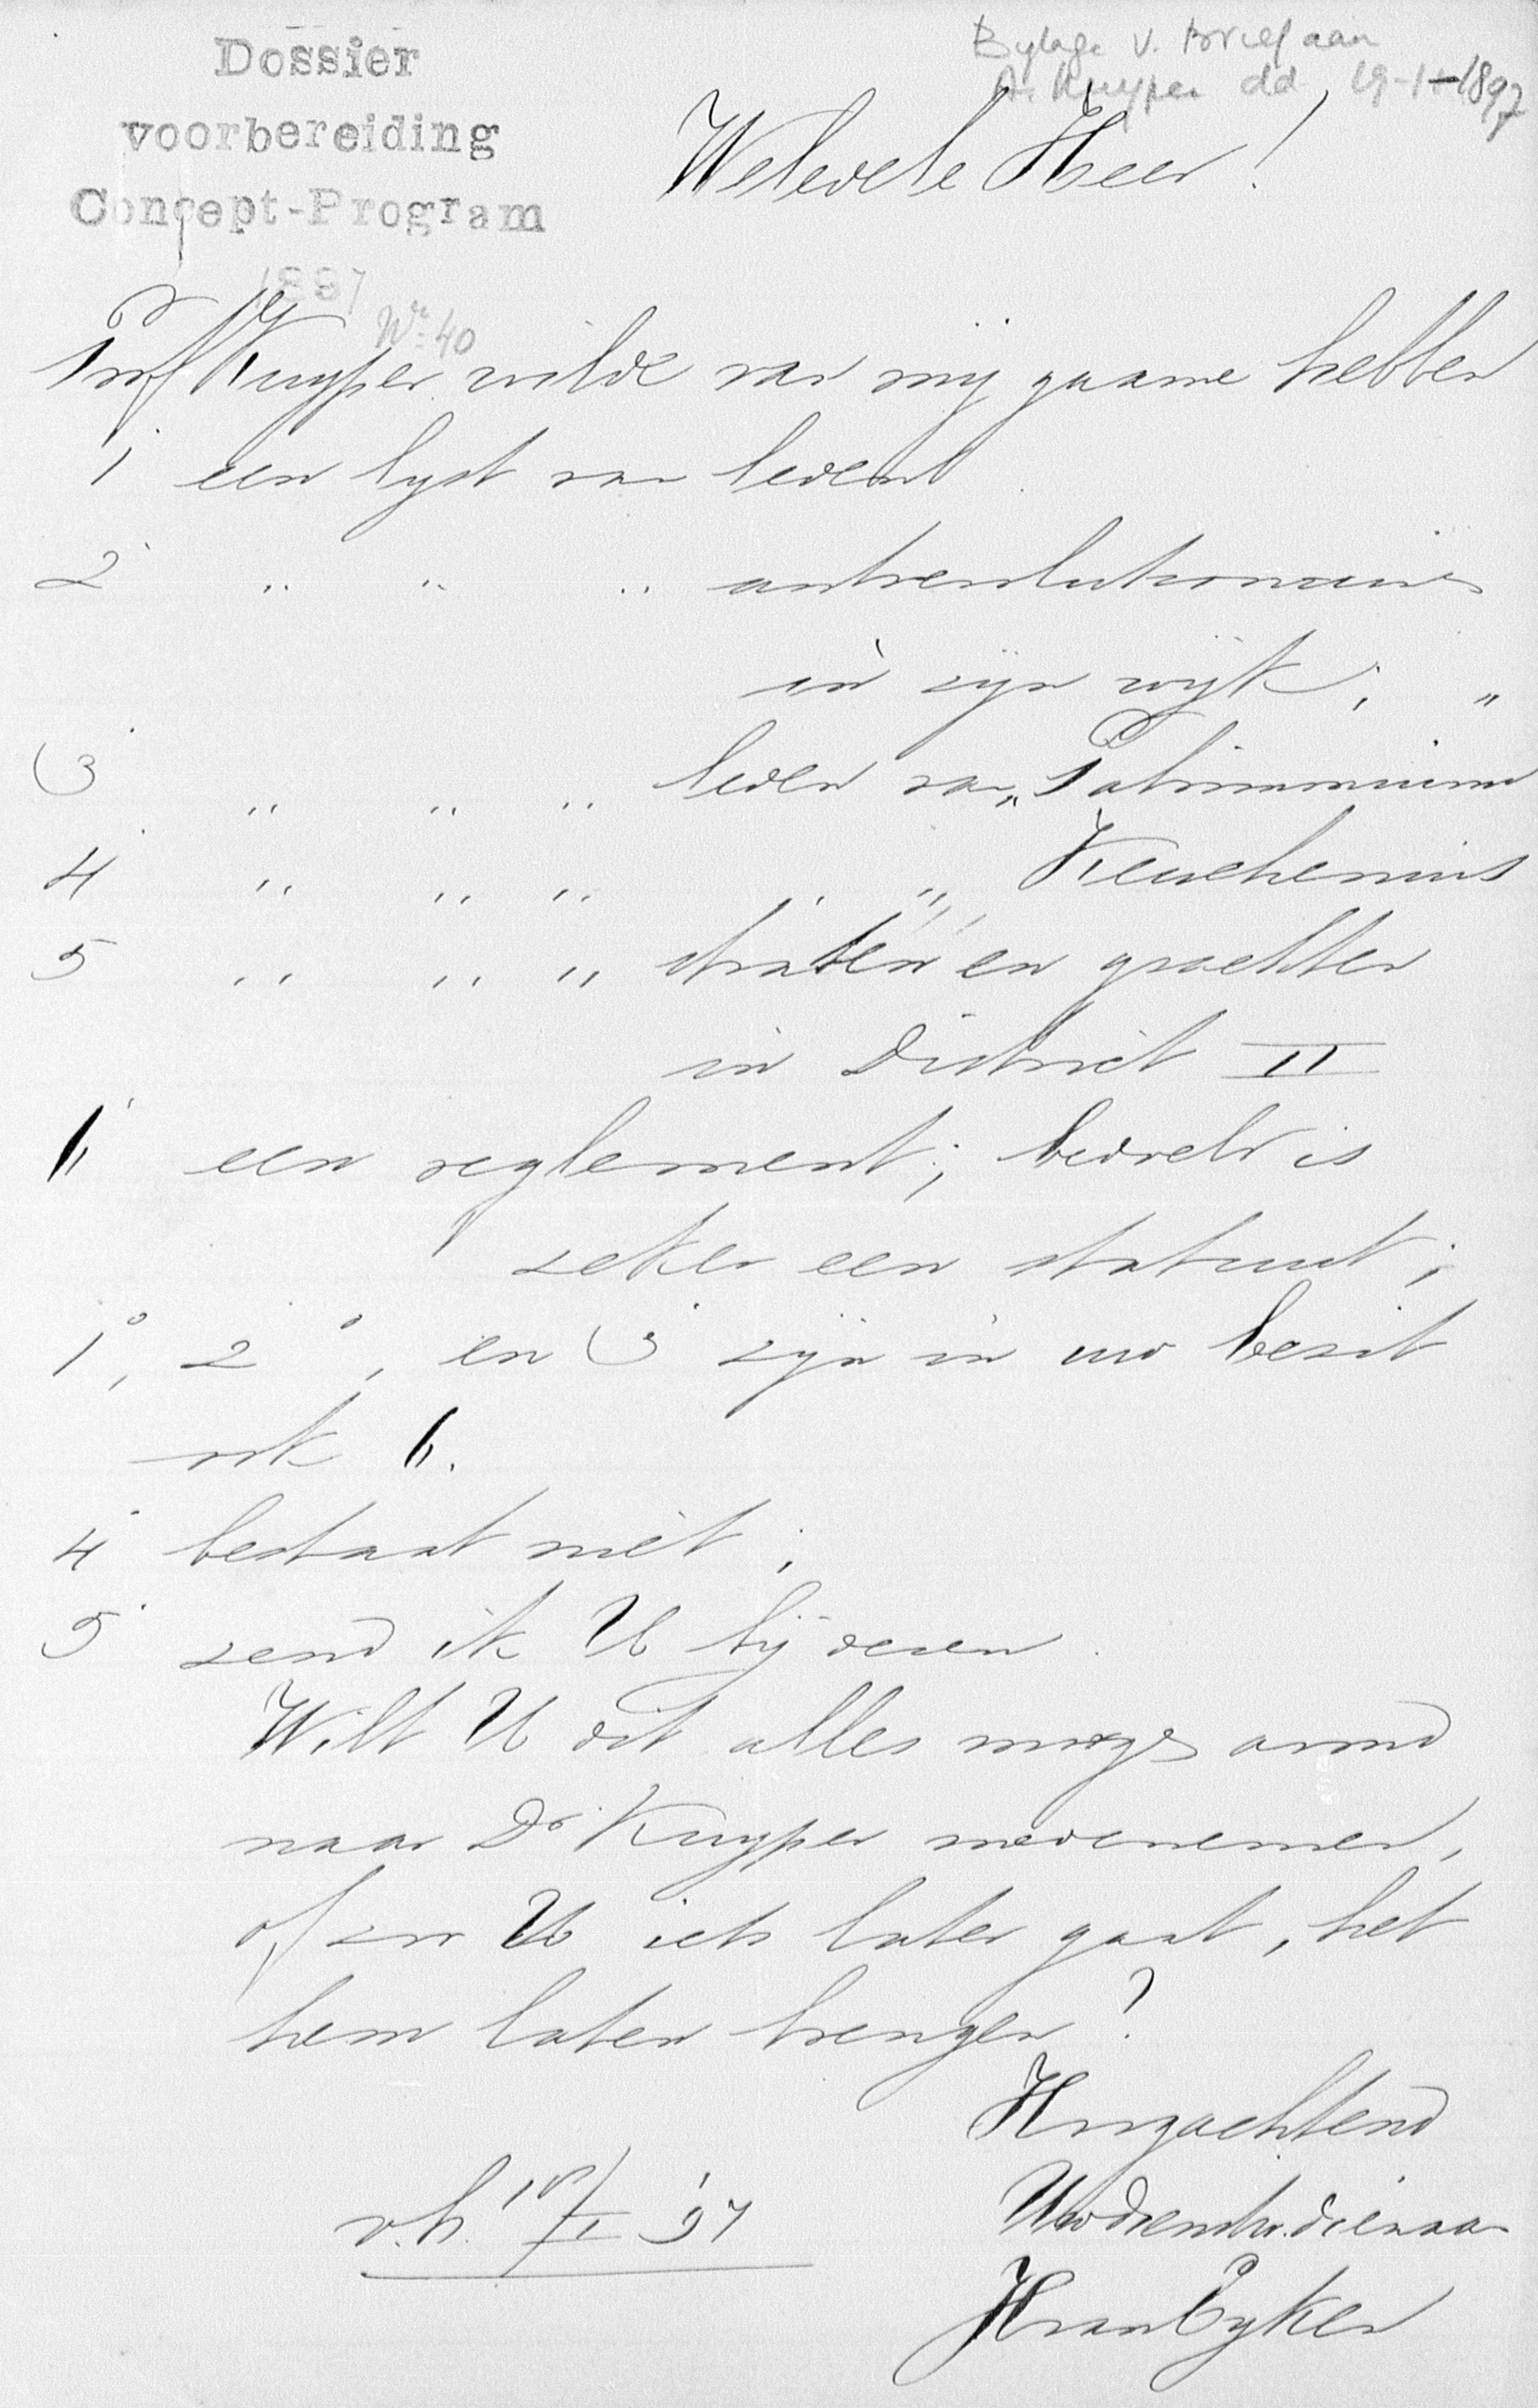 Dossier
voorbereiding
Concept-Program
1897
No 40
Bylage v. brief aan
A. Kuyper dd 19-1-1897
Weledele Heer!
Prof Kuyper wilde van mij gaarne hebben
1° een lyst van leden
2° " " " antirevolutionairen
in zijn wijk; "
3° " " " leden van "Patrimonium
4° " " " " " Keuchenius
5° " " " straten en grachten
in District II
6° een reglement; bedoeld is
zeker een statuut;
1°, 2°, en 3° zijn in uw bezit
ook 6.
4° bestaat niet;
5° zend ik U bij dezen.
Wilt U dit alles morgen avond
naar Dr Kuyper medenemen,
of zoo U iets later gaat, het
hem laten brengen?
Hoogachtend
Uw dienstw. dienaar
H van Eyken
v.h. /I '97